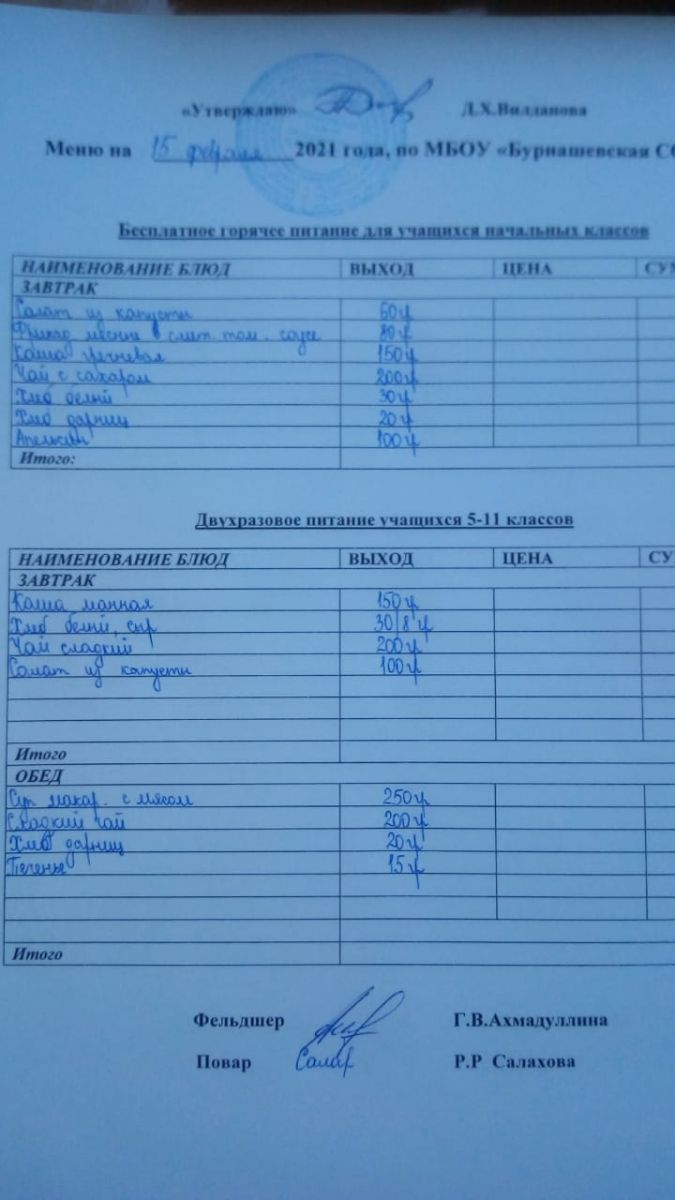 «Утверждаю» Д.Х.Вилданова
Меню на 15 февраля 2021 года, по МБОУ «Бурнашевская СО
Бесплатное горячее питание для учащихся начальных классов
НАИМЕНОВАНИЕ БЛЮД ВЫХОД ЦЕНА СУМ
ЗАВТРАК
Салат из капусты 60 гр
мясные в смет. том. соусе 80 гр
Каша гречневая 150 гр
Чай с сахаром 200 гр
Хлеб белый 30 гр
Хлеб дарниц 20 гр
Апельсин 100 гр
Итого:
Двухразовое питание учащихся 5-11 классов
НАИМЕНОВАНИЕ БЛЮД ВЫХОД ЦЕНА СУ
ЗАВТРАК
Каша манная 150 гр
Хлеб белый, сыр 30/8 гр
Чай сладкий 200 гр
Салат из капусты 100 гр
Итого
ОБЕД
Суп макар. с мясом 250 гр
Сладкий чай 200 гр
Хлеб дарниц 20 гр
Печенье 15 гр
Итого
Фельдшер Г.В.Ахмадуллина
Повар Салах Р.Р Салахова